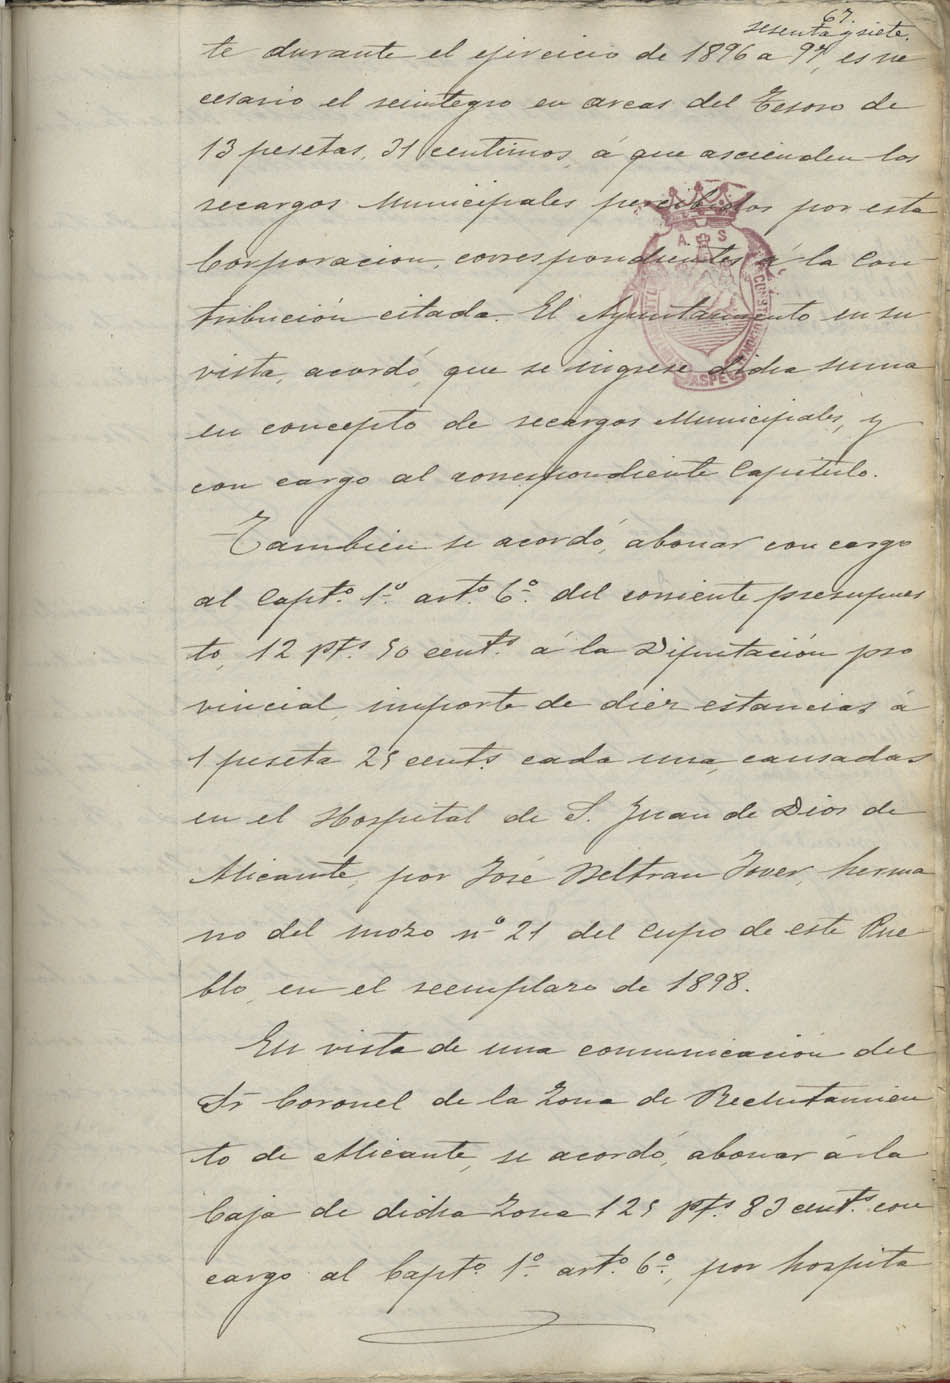 67.
sesenta y siete.
te durante el ejercicio de 1896 a 97, es ne
cesario el reintegro en arcas del Tesoro de
13 pesetas, 31 centimos, á que ascienden los
recargos Municipales percibidos por esta
Corporacion, correspondientes á la Con
tribución citada. El Ayuntamiento en su
vista, acordó, que se ingrese dicha suma
en concepto de recargos Municipales, y
con cargo al correspondiente Capitulo.
Tambien se acordó, abonar con cargo
al Capto. 1º. arto. 6º. del corriente presupues
to, 12 pts. 50 cents. á la Diputación pro
vincial, importe de diez estancias á
1 peseta 25 cents. cada una, causadas
en el Hospital de S. Juan de Dios de
Alicante, por José Beltran Jover, herma
no del mozo nº 21 del cupo de este Pue
blo, en el reemplazo de 1898.
En vista de una comunicación del
Sr. Coronel de la Zona de Reclutamien
to de Alicante, se acordó, abonar á la
Caja de dicha Zona 125 pts. 83 cents. con
cargo al Capto. 1º. arto. 6º., por hospita
A. S
ASPE